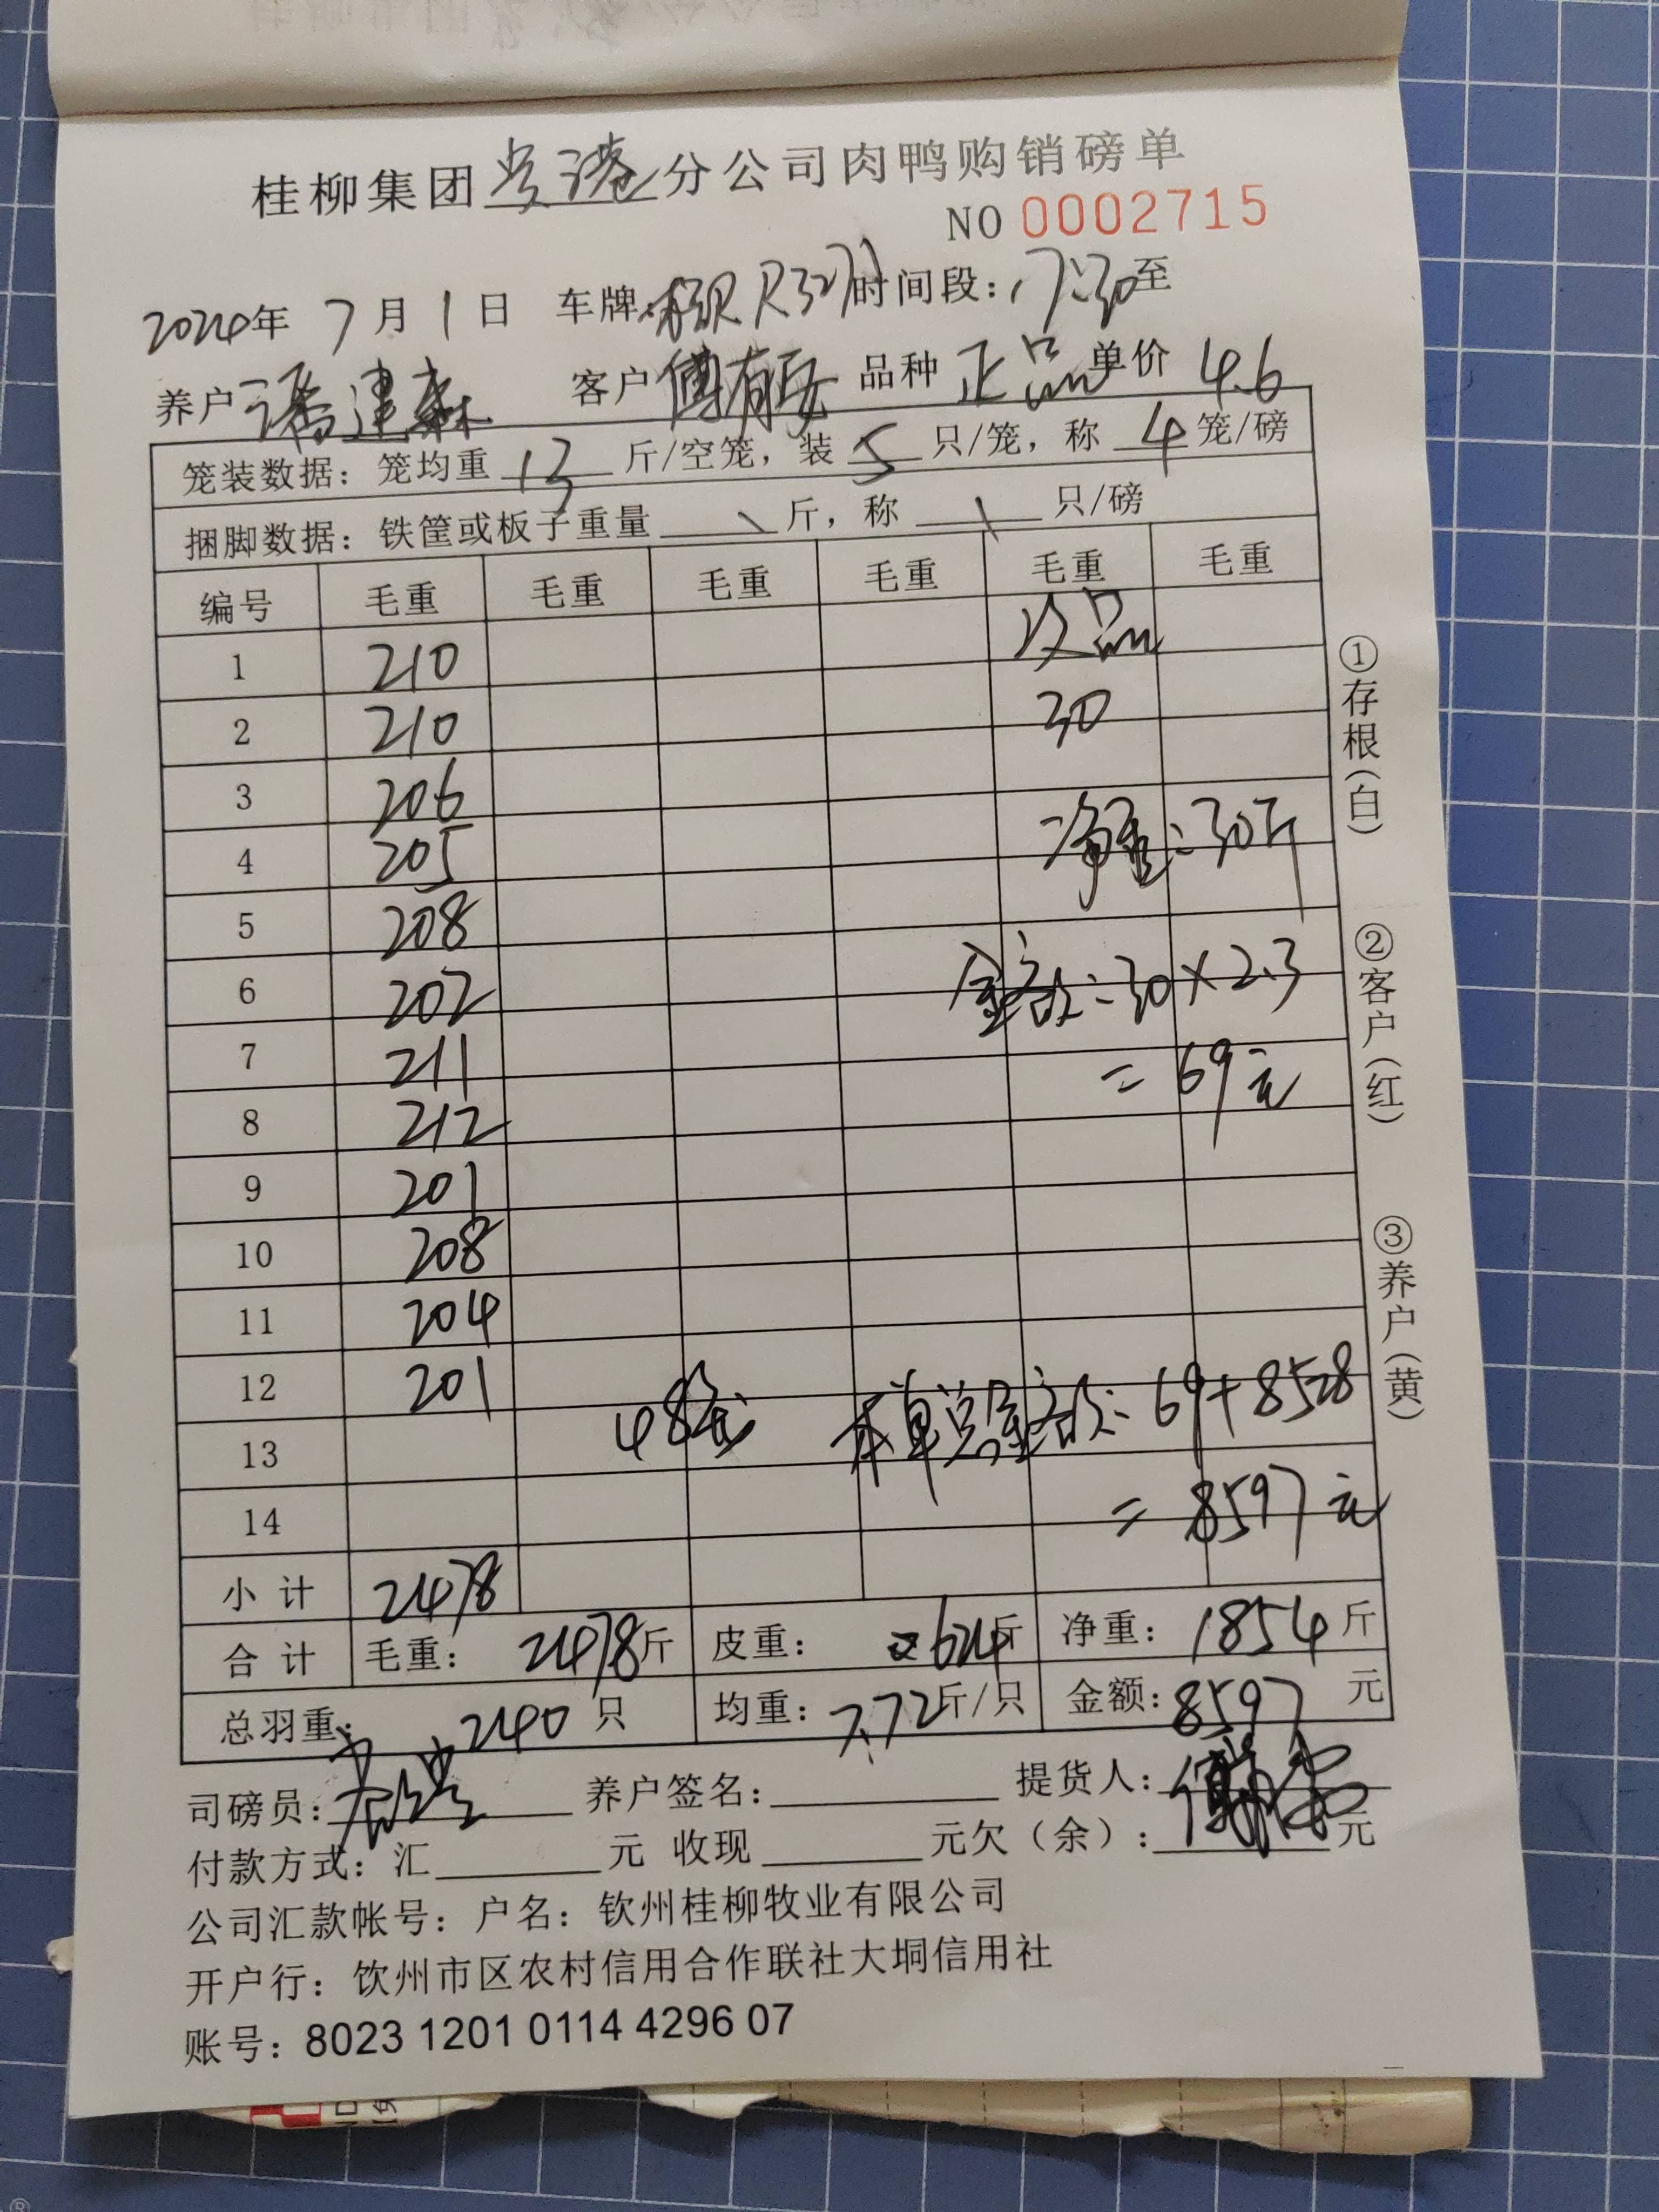 桂柳集团贵港分公司肉鸭购销磅单
NO 0002715
2024年 7月 1日 车牌: R327 时间段: 17:30至
养户 潘建森 客户 傅有安 品种 正品 单价 4.6
笼装数据: 笼均重 13 斤/空笼, 装 5 只/笼, 称 4 笼/磅
捆脚数据: 铁筐或板子重量 \ 斤, 称 \ 只/磅
编号 毛重 毛重 毛重 毛重 毛重 毛重
1 210 次品
2 210 30
3 206
4 205 净重:30斤
5 208
6 202 金额:30×2.3
7 211 =69元
8 212
9 201
10 208
11 204
12 201
13 48笼 本单总金额:69+8528
14 =8597元
小计 2478
合计 毛重: 2478斤 皮重: 624斤 净重: 1854斤
总羽重: 240只 均重: 7.72斤/只 金额: 8597元
司磅员: 养户签名: 提货人:
付款方式: 汇 元 收现 元欠(余): 元
公司汇款帐号: 户名: 钦州桂柳牧业有限公司
开户行: 饮州市区农村信用合作联社大垌信用社
账号: 8023 1201 0114 4296 07
①存根(白)
②客户(红)
③养户(黄)